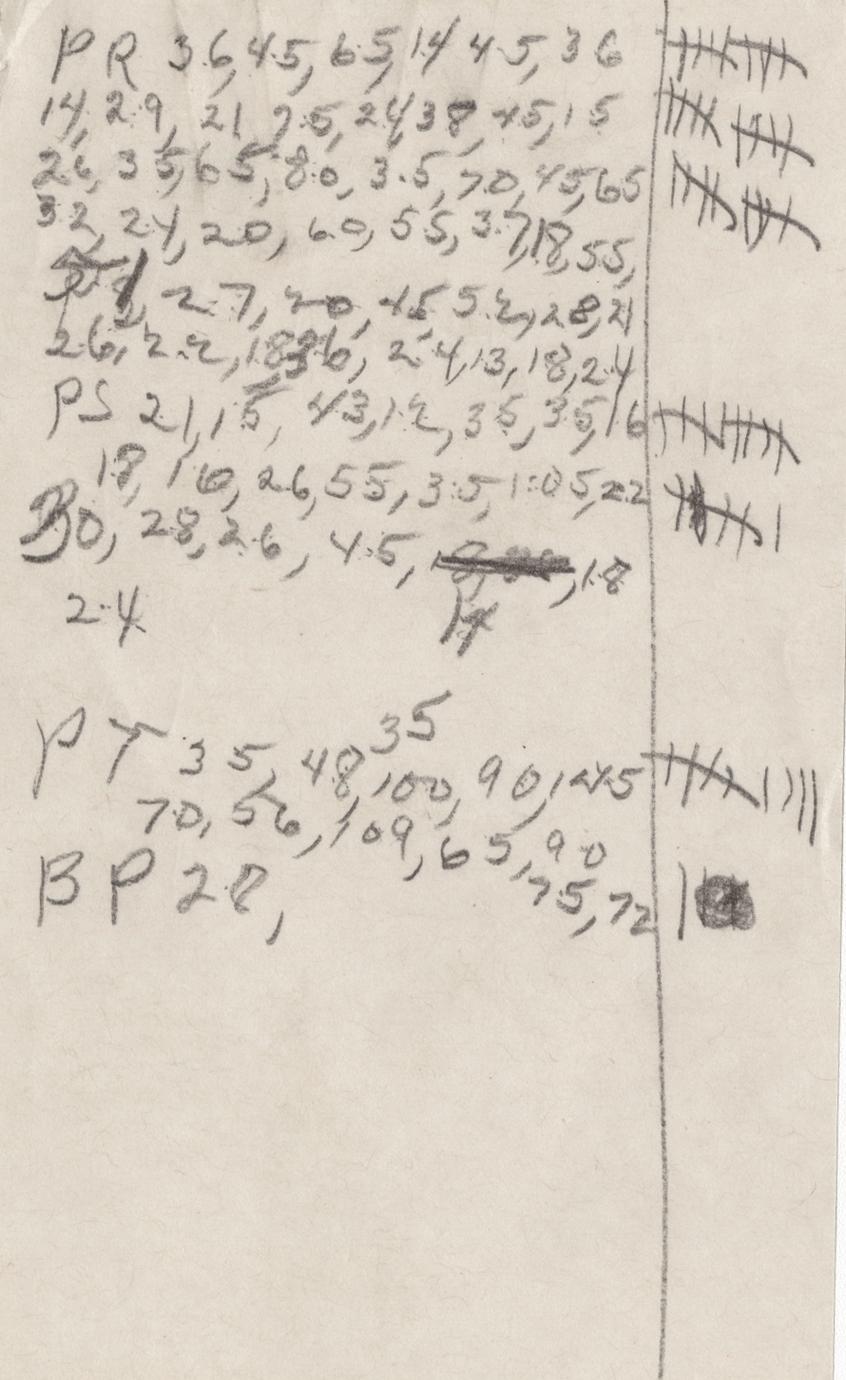 PR 36,45,65,14 45,36
14,29,21 75,24,38,45,15
26,35,65,80,3.5,70,45,65
32,24,20,60,55,3.7,18,55,
27,20,45 52,28,21
26,22,18,36, 24,13,18,24
PS 21,15, 43,12,35,35,16
18,16,26,55,35,1:05,22
30, 28,26, 45, ,18
24
35
PT 35,48,100,90,145
70,56,109,65,90
BP 28, 75,72